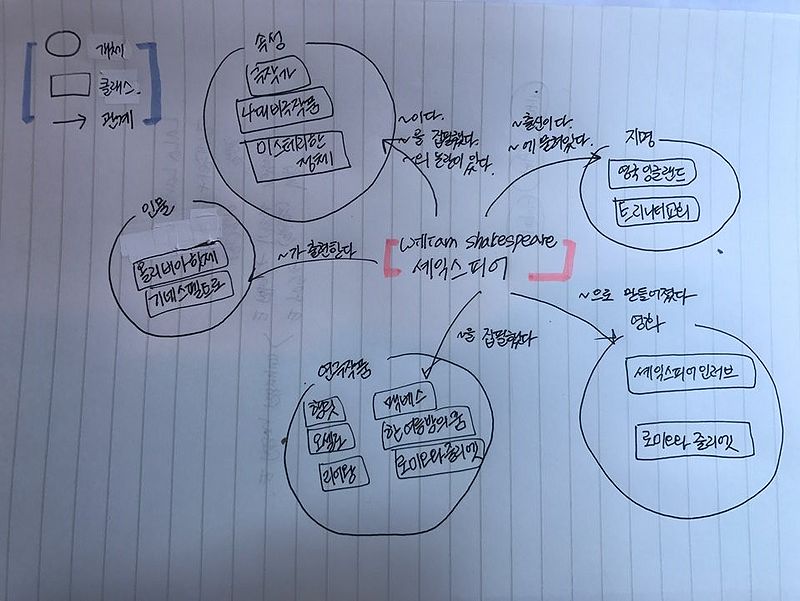 개체
클래스.
관계
속성
극작가
4대비극작품
미스테리한
정체
~이다.
~를 집필했다.
~의 논란이 있다.
~출신이다.
~에 묻혀있다.
지명
영국 잉글랜드
트리니티교회
인물
올리비아 핫세
기네스펠트로
~가 출현한다
William shakespeare
셰익스피어
~을 집필했다
연극작품
햄릿
오셀로
리어왕
맥베스
한여름밤의꿈
로미오와줄리엣
~으로 만들어졌다
영화
셰익스피어 인러브
로미오와 줄리엣